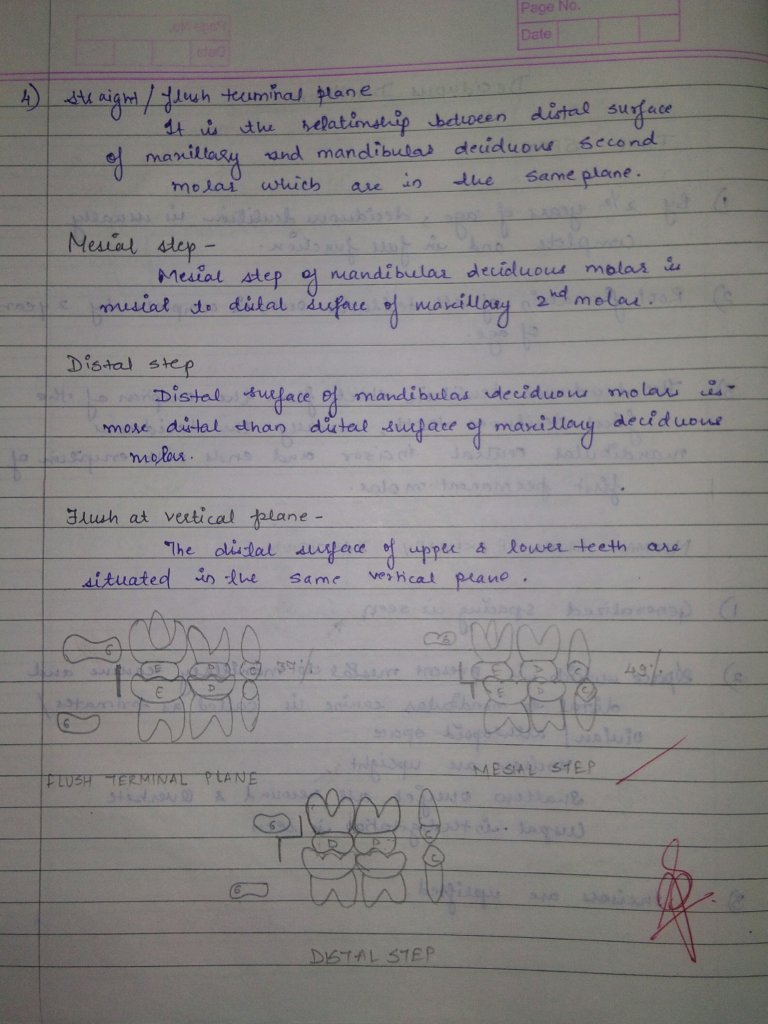 Page No.
Date
4) Straight / flush terminal plane
It is the relationship between distal surface
of maxillary and mandibular deciduous second
molar which are in the same plane.
Mesial step -
Mesial step of mandibular deciduous molar is
mesial to distal surface of maxillary 2nd molar.
Distal step
Distal surface of mandibular deciduous molar is
more distal than distal surface of maxillary deciduous
molar.
Flush at vertical plane -
The distal surface of upper & lower teeth are
situated in the same vertical plane.
6 E D C 37%
E D C
6
FLUSH TERMINAL PLANE
6 E D C 49%
E D C
MESIAL STEP
6 D D C
C
6
DISTAL STEP